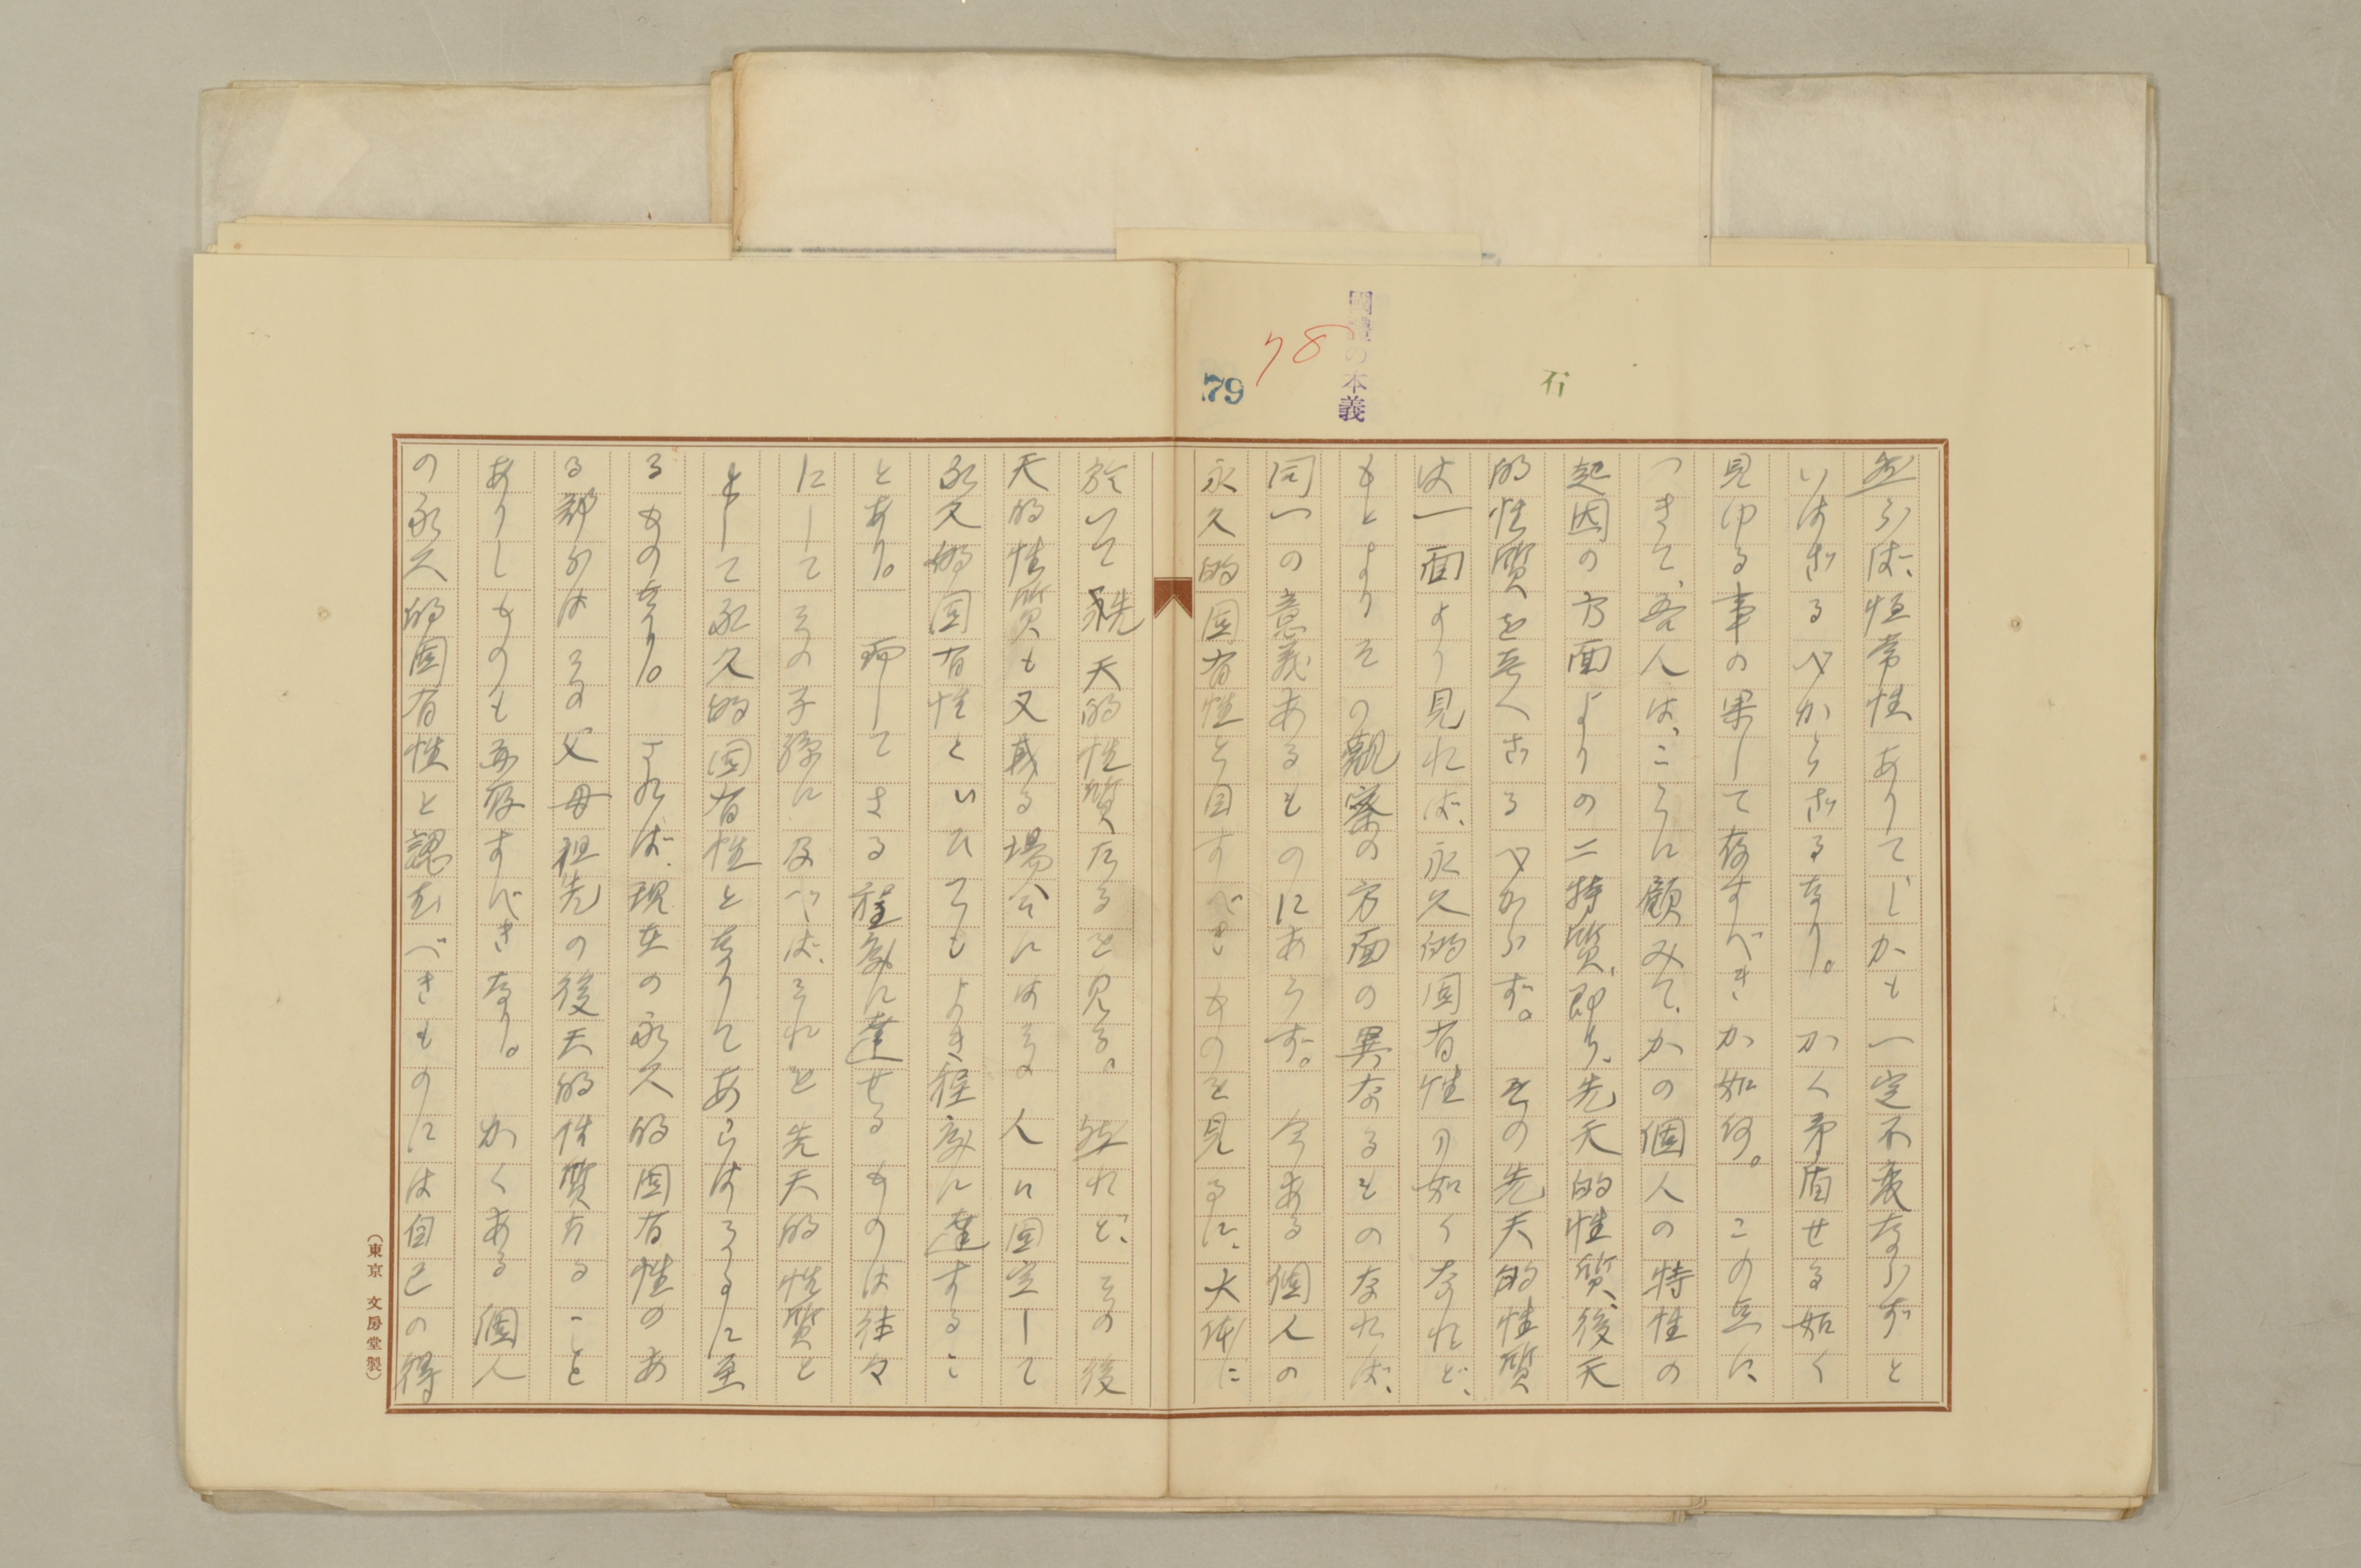 國語の本義
78
79
石
然らば、恒常性ありて、しかも一定不変ならずと
いはざるべからざるなり。かく矛盾せる如く
見ゆる事の果して存すべきか如何。この点に
つきて、吾人は、こゝに顧みて、かの個人の特性の
起因の方面よりの二特質、即ち、先天的性質、後天
的性質を考へざるべからず。その先天的性質
は一面より見れば、永久的固有性の如くなれど、
もとよりその観察の方面の異なるものなれば、
同一の意義あるものにあらず。今ある個人の
永久的固有性と目すべきものを見るに、大体に
於いて先天的性質なるを見る。然れど、その後
天的性質も又或る場合にはその人に固定して
永久的固有性といひてもよき程度に達するこ
とあり。而してさる程度に達せるものは往々
にしてその子孫に及べば、それを先天的性質と
して永久的固有性となりてあらはるゝに至
るものなり。されば、現在の永久的固有性のあ
る部分はその父母祖先の後天的性質なること
ありしものも存すべきなり。かくある個人
の永久的固有性と認むべきものには自己の得
（東京 文房堂製）